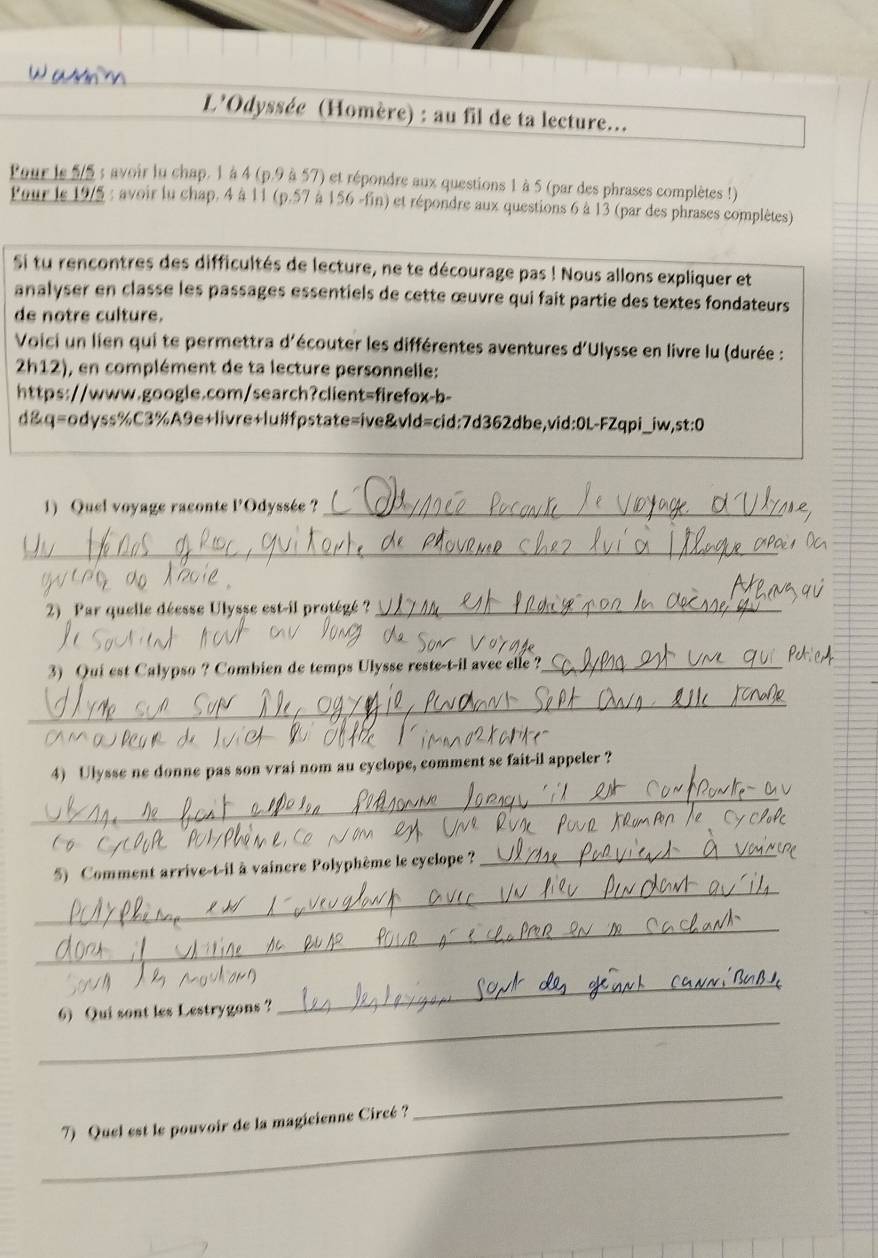 Wassim
L'Odyssée (Homère) : au fil de ta lecture...
Pour le 5/5 : avoir lu chap. 1 à 4 (p.9 à 57) et répondre aux questions 1 à 5 (par des phrases complètes !)
Pour le 19/5 : avoir lu chap. 4 à 11 (p.57 à 156 -fin) et répondre aux questions 6 à 13 (par des phrases complètes)
Si tu rencontres des difficultés de lecture, ne te décourage pas ! Nous allons expliquer et
analyser en classe les passages essentiels de cette œuvre qui fait partie des textes fondateurs
de notre culture.
Voici un lien qui te permettra d'écouter les différentes aventures d'Ulysse en livre lu (durée :
2h12), en complément de ta lecture personnelle:
https://www.google.com/search?client=firefox-b-
d&q=odyss%C3%A9e+livre+lu#fpstate=ive&vld=cid:7d362dbe,vid:0L-FZqpi_iw,st:0
1) Quel voyage raconte l'Odyssée ? L'Odyssée raconte le voyage d'Ulysse,
Un Héros grec, qui tente de retourner chez lui à apais
guerre de Troie.
2) Par quelle déesse Ulysse est-il protégé ? Ulysse est la déesse, Athena, qui
le soutient tout au long de son voyage
3) Qui est Calypso ? Combien de temps Ulysse reste-t-il avec elle ? Calypso est une qui retient
Ulysse sur son île, ogygie, pendant sept ans. elle tombe
amoureuse de lui et lui offre l'immortalité
4) Ulysse ne donne pas son vrai nom au cyclope, comment se fait-il appeler ?
Ulysse, se fait appeler personne lorsqu'il est confronté au
cyclope polyphème, ce nom est une ruse pour tromper le cyclope
5) Comment arrive-t-il à vaincre Polyphème le cyclope ? Ulysse parvient à vaincre
Polyphème en l'aveuglant avec un pieu pendant qu'il
dort il utilise sa ruse pour s'échapper en se cachant
sous les moutons
6) Qui sont les Lestrygons ? les sont des géant cannibale
7) Quel est le pouvoir de la magicienne Circé ?